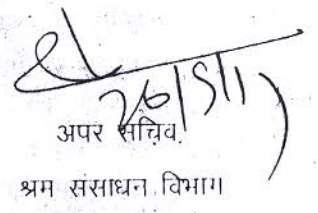 26/5/11
अपर सचिव
श्रम संसाधन विभाग।